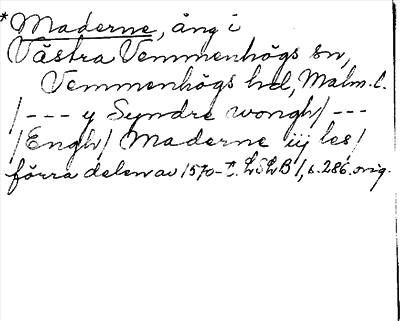 *Maderne, äng i
Västra Vemmenhögs sn,
Vemmenhögs hd, Malm. l.
/--- y Syndre wongh/---
/Engh/ Maderne iij les/
förra delen av 1570-t. LSLB 1, s. 286. orig.